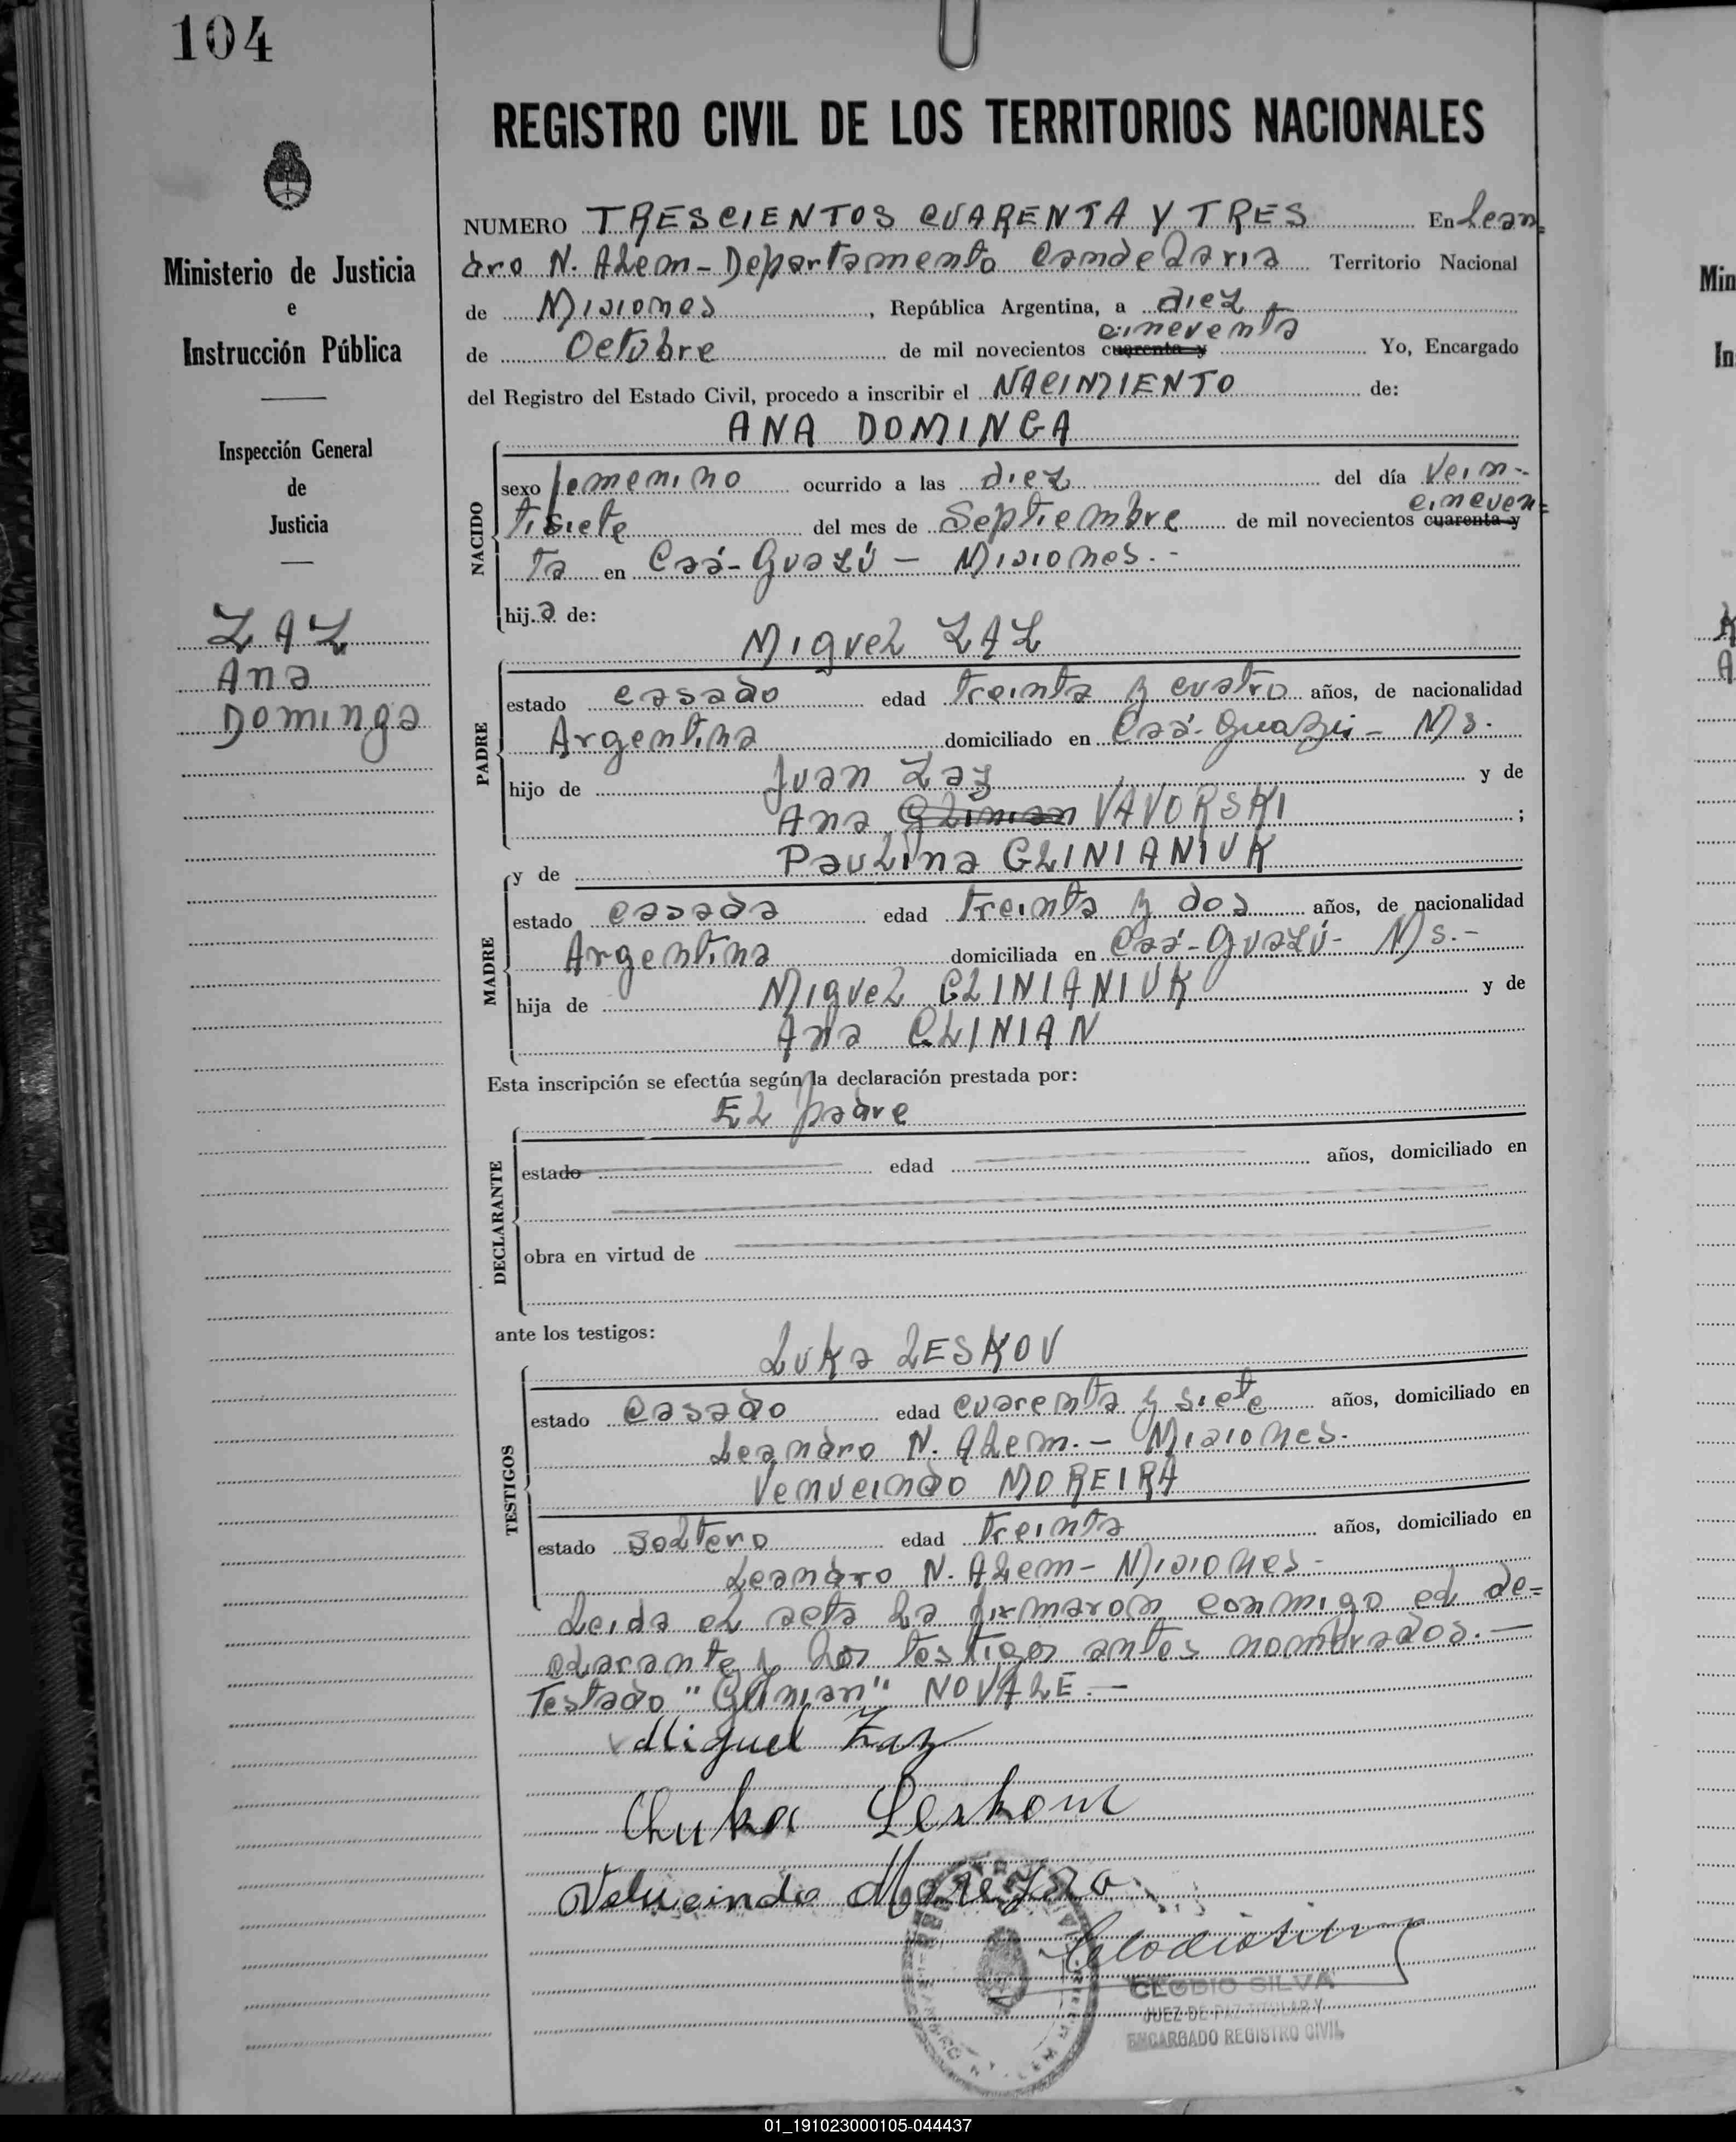 104
REGISTRO CIVIL DE LOS TERRITORIOS NACIONALES
Ministerio de Justicia
e
Instrucción Pública
Inspección General
de
Justicia
ZAZ
Ana
Dominga
NUMERO TRESCIENTOS CUARENTA Y TRES En Lean=
dro N. Alem - Departamento Candelaria Territorio Nacional
de Misiones, República Argentina, a diez
cincuenta
de Octubre de mil novecientos cuarenta y Yo, Encargado
del Registro del Estado Civil, procedo a inscribir el NACIMIENTO de:
ANA DOMINGA
NACIDO
sexo femenino ocurrido a las diez del día vein-
cincuen=
tisiete del mes de Septiembre de mil novecientos cuarenta y
ta en Caá-Guazú - Misiones.-
hij.a de:
Miguel ZAZ
PADRE
estado casado edad treinta y cuatro años, de nacionalidad
Argentina domiciliado en Caá-Guazú - Ms.
hijo de Juan Zaz y de
Ana Glinian VAVORSKI ;
y de Paulina GLINIANIUK
MADRE
estado casada edad treinta y dos años, de nacionalidad
Argentina domiciliada en Caá-Guazú- Ms.-
hija de Miguel GLINIANIUK y de
Ana GLINIAN
Esta inscripción se efectúa según la declaración prestada por:
El padre
DECLARANTE
estado edad años, domiciliado en
obra en virtud de
ante los testigos:
Luka LESKOV
TESTIGOS
estado casado edad cuarenta y siete años, domiciliado en
Leandro N. Alem.- Misiones.
Venucindo MOREIRA
estado soltero edad treinta años, domiciliado en
Leandro N. Alem - Misiones-
Leida el acta la firmaron conmigo el de=
clarante y los testigos antes nombrados.-
Testado "Glinian" NO VALE.-
Miguel Zaz
Chuka Leskow
Moreira
CLODIO SILVA
JUEZ DE PAZ TITULAR Y
ENCARGADO REGISTRO CIVIL
Min
In
01_191023000105-044437